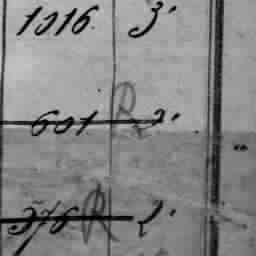 1016 3.
601 R 2.
376 R 2.